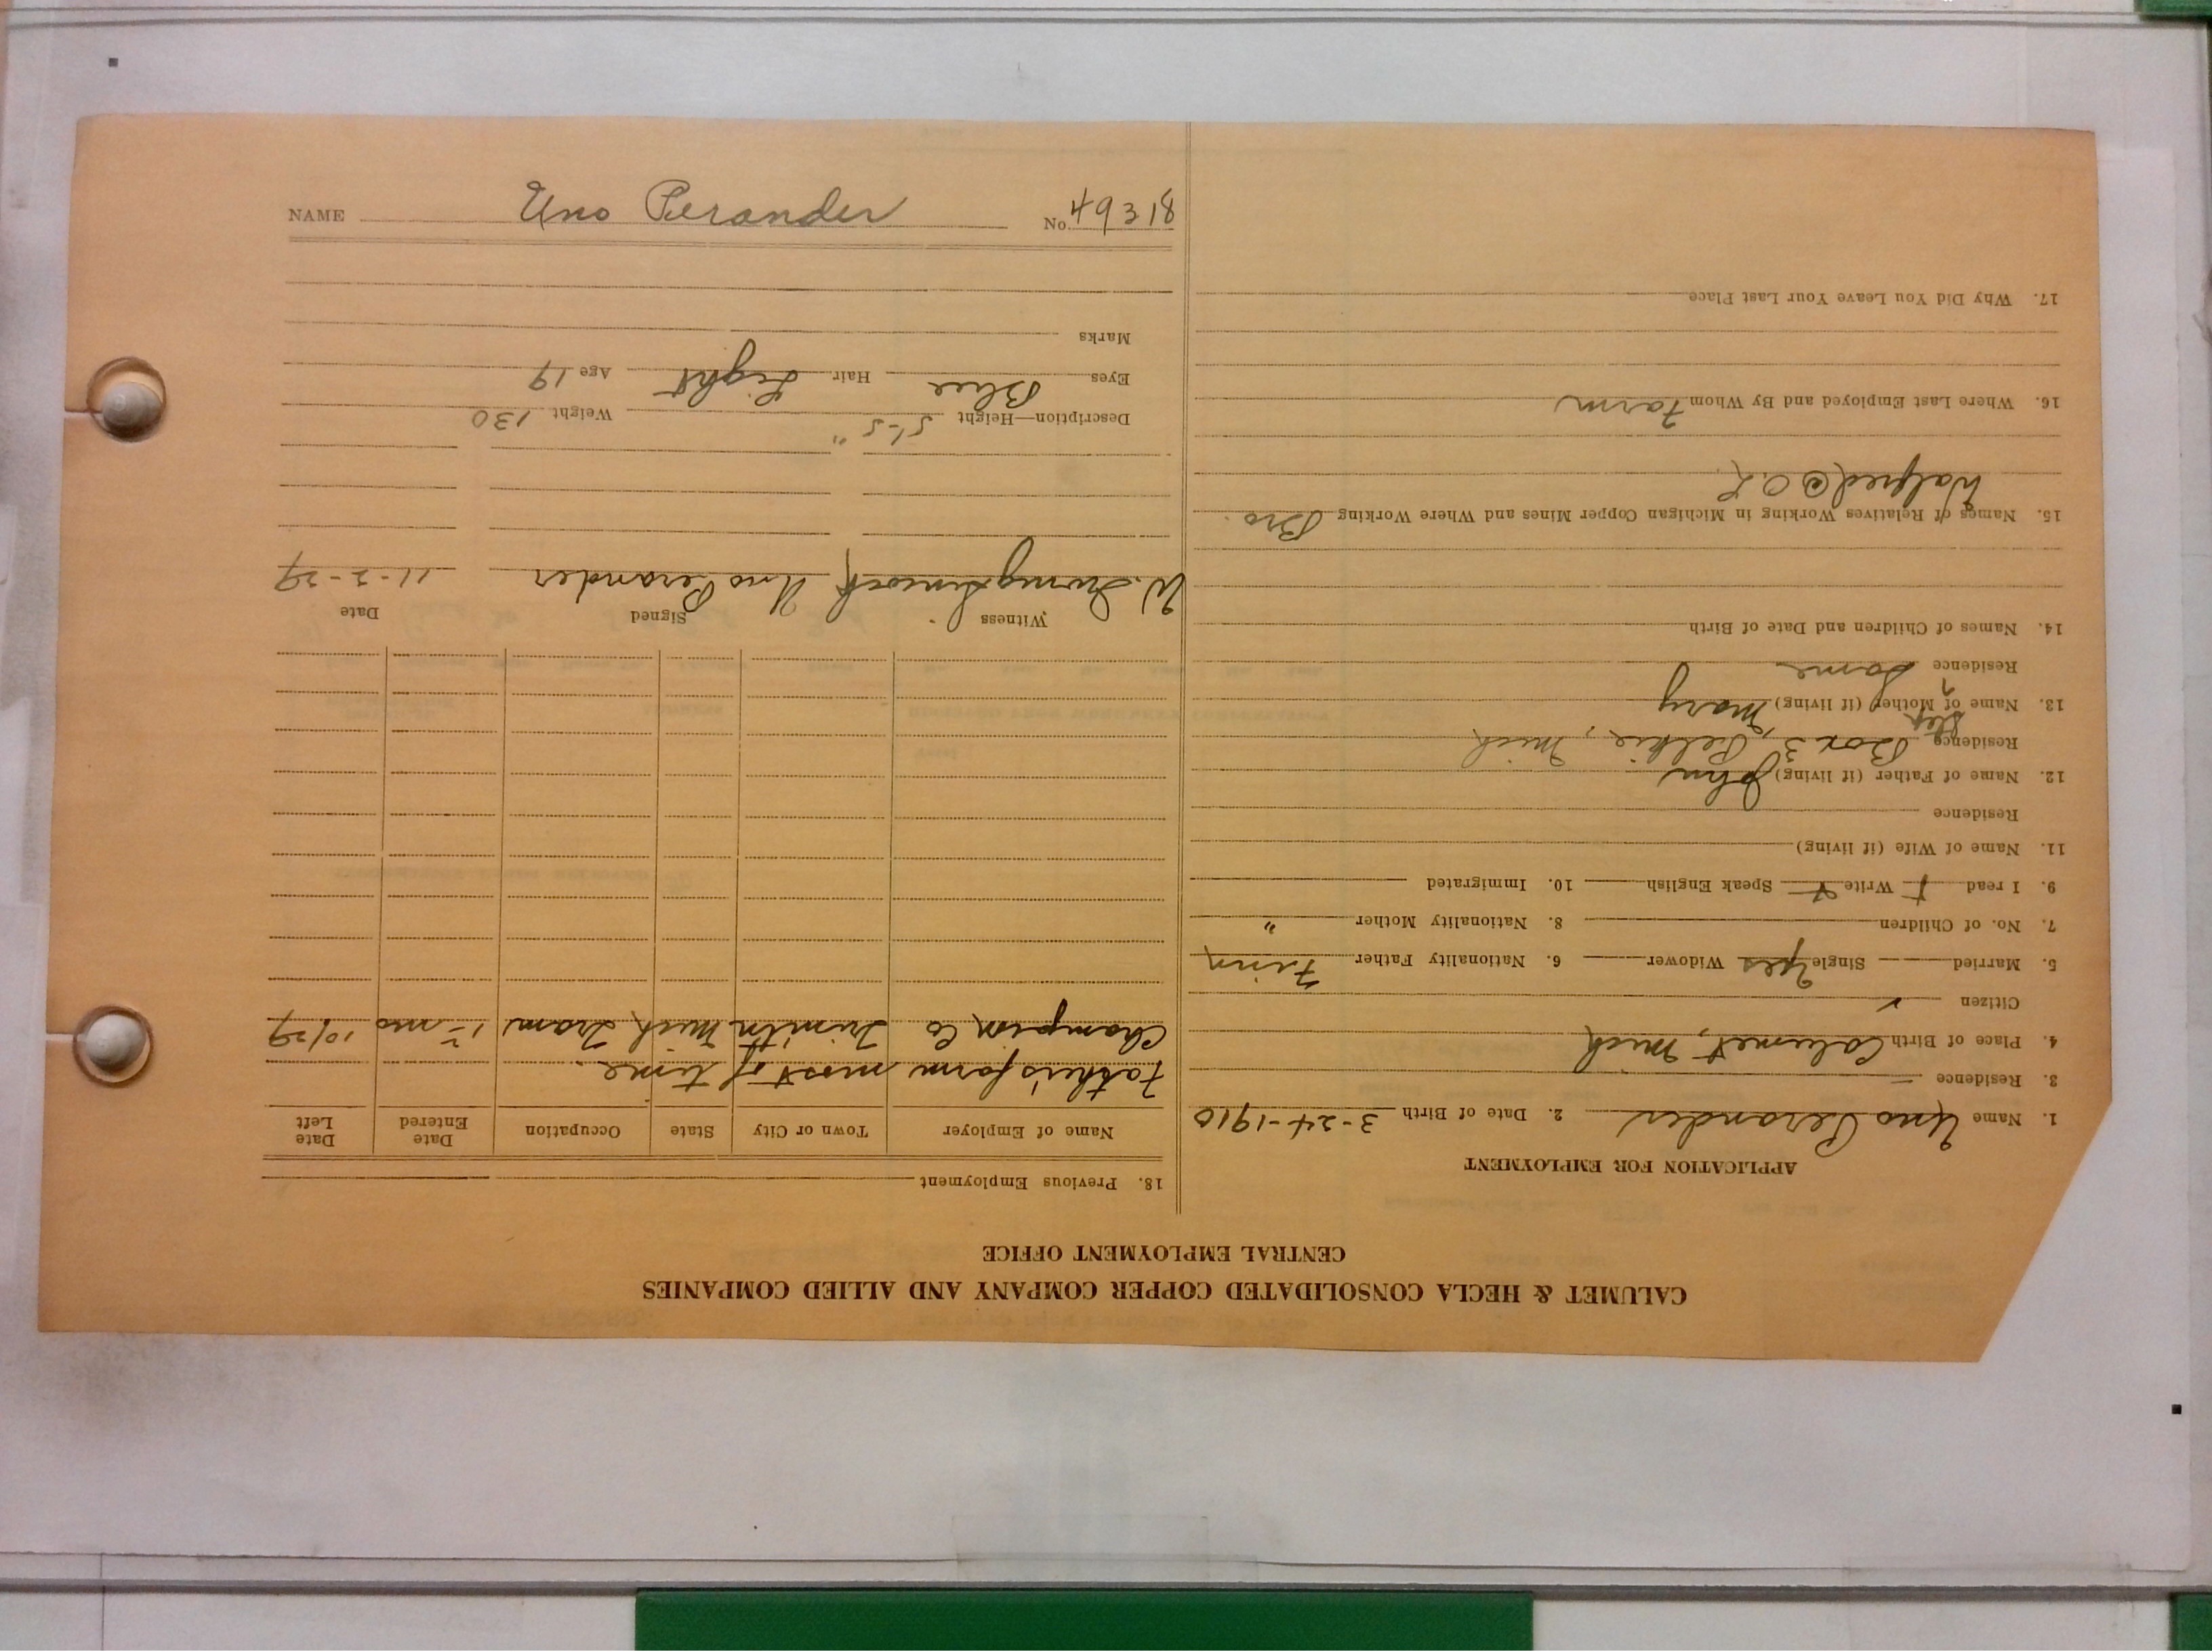 CALUMET & HECLA CONSOLIDATED COPPER COMPANY AND ALLIED COMPANIES
CENTRAL EMPLOYMENT OFFICE
APPLICATION FOR EMPLOYMENT
1. Name Uno Perander 2. Date of Birth 3-24-1910
3. Residence —
4. Place of Birth Calumet, Mich
Citizen ✓
5. Married Single Yes Widower 6. Nationality Father Finn
7. No. of Children 8. Nationality Mother "
9. I read Write Speak English 10. Immigrated
11. Name of Wife (if living)
Residence
12. Name of Father (if living) John
Residence Box 3, Pelkie, Mich
Step
13. Name of Mother (if living) Mary
Residence Same
14. Names of Children and Date of Birth
15. Names of Relatives Working in Michigan Copper Mines and Where Working Bro.
Walfred @ O.L.
16. Where Last Employed and By Whom Farm
17. Why Did You Leave Your Last Place
18. Previous Employment
Name of Employer Town or City State Occupation Date Entered Date Left
Father's farm most of time.
Champion Co Trimtn Mich Tram mo 10/29
Witness Signed Date
W. Uno Perander 11-2-29
Description—Height 5'-5" Weight 130
Eyes Blue Hair Light Age 19
Marks
NAME Uno Perander No. 49318